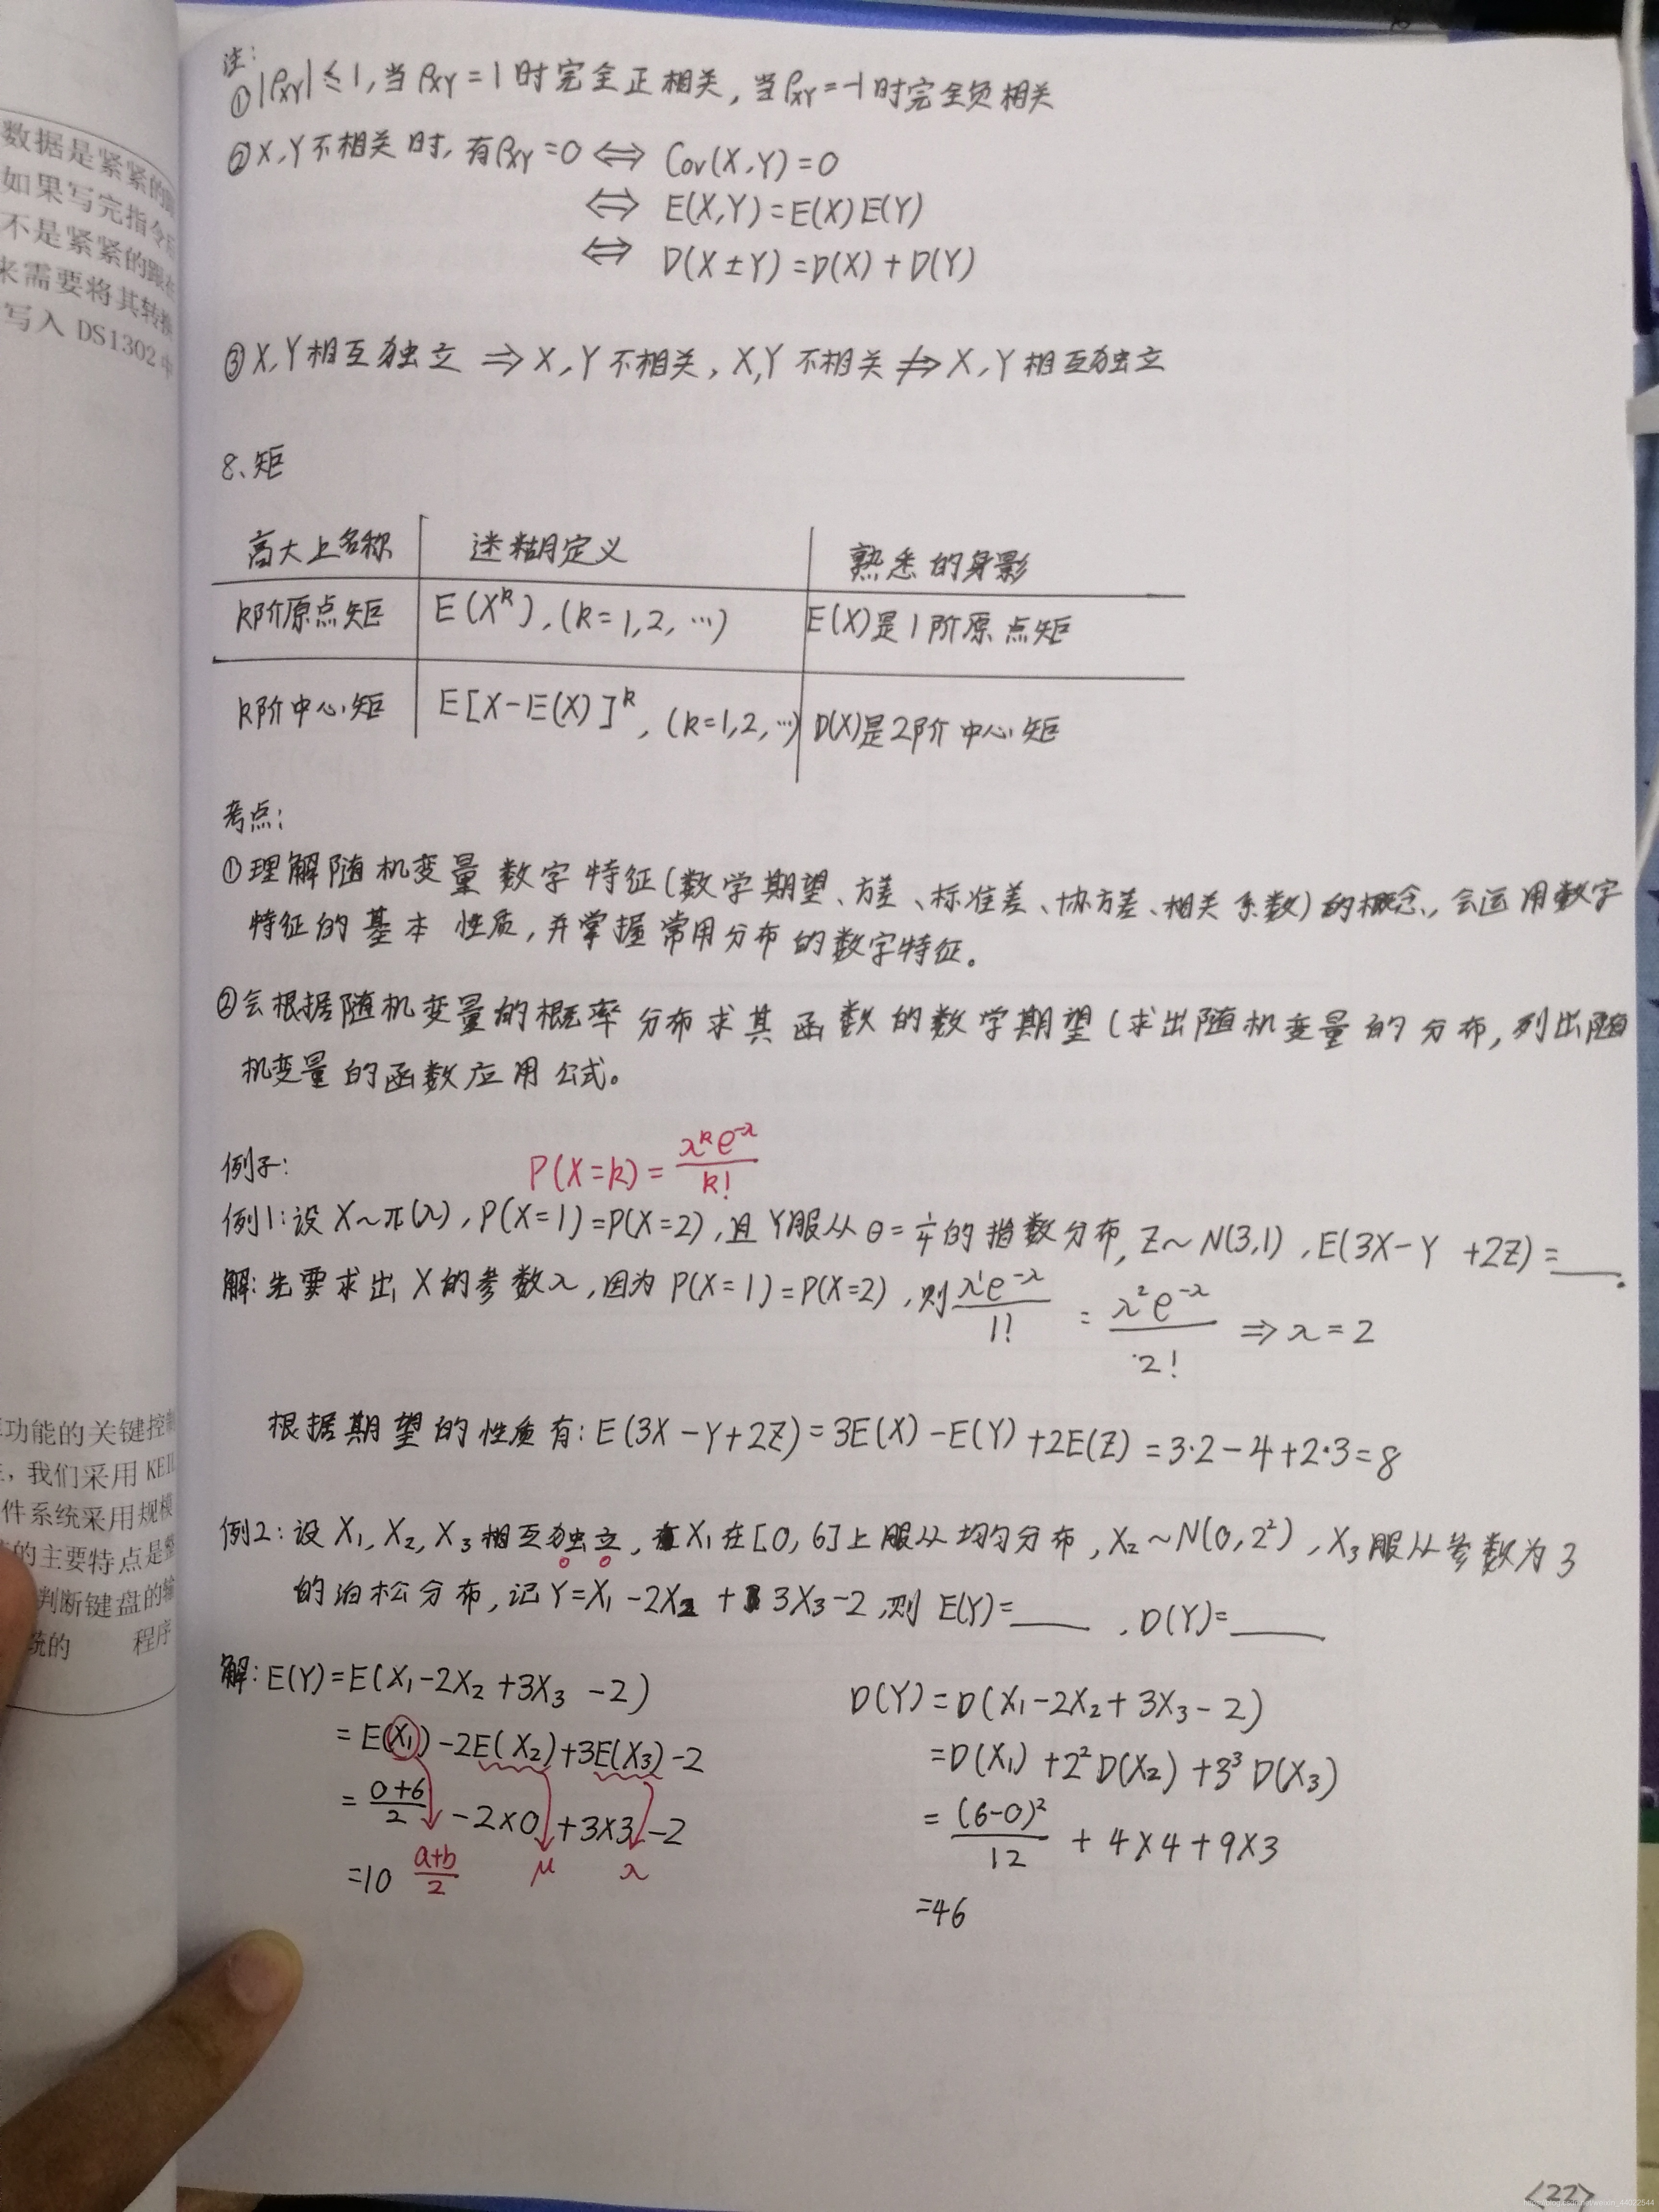 数据是紧紧的
如果写完指令
不是紧紧的跟
来需要将其转换
写入 DS1302 中
功能的关键控制
，我们采用 KEIL
件系统采用规模
的主要特点是整
判断键盘的输
统的 程序
注:
①|ρXY|≤1,当ρXY=1时完全正相关,当ρXY=-1时完全负相关
②X,Y不相关时,有ρXY=0⇔ Cov(X,Y)=0
⇔ E(X,Y)=E(X)E(Y)
⇔ D(X±Y)=D(X)+D(Y)
③X,Y相互独立 ⇒X,Y不相关,X,Y不相关⇏X,Y相互独立
8、矩
高大上名称 迷糊定义 熟悉的身影
k阶原点矩 E(X^k),(k=1,2,…) E(X)是1阶原点矩
k阶中心矩 E[X-E(X)]^k,(k=1,2,…) D(X)是2阶中心矩
考点:
①理解随机变量数字特征(数学期望、方差、标准差、协方差、相关系数)的概念,会运用数字
特征的基本性质,并掌握常用分布的数字特征。
②会根据随机变量的概率分布求其函数的数学期望(求出随机变量的分布,列出随
机变量的函数应用公式。
例子: P(X=k)=λ^k e^-λ/k!
例1:设X~π(λ),P(X=1)=P(X=2),且Y服从θ=1/4的指数分布,Z~N(3,1),E(3X-Y +2Z)=___.
解:先要求出X的参数λ,因为P(X=1)=P(X=2),则λ^1e^-λ/1! = λ^2e^-λ/2! ⇒λ=2
根据期望的性质有:E(3X-Y+2Z)=3E(X)-E(Y)+2E(Z)=3·2-4+2·3=8
例2:设X₁,X₂,X₃相互独立,X₁在[0,6]上服从均匀分布,X₂~N(0,2²),X₃服从参数为3
的泊松分布,记Y=X₁-2X₂+3X₃-2,则E(Y)=____,D(Y)=____
解:E(Y)=E(X₁-2X₂+3X₃-2)
=E(X₁)-2E(X₂)+3E(X₃)-2
=0+6/2-2×0+3×3-2
=10 a+b/2 μ λ
D(Y)=D(X₁-2X₂+3X₃-2)
=D(X₁)+2²D(X₂)+3³D(X₃)
=(6-0)²/12+4×4+9×3
=46
<22>
https://blog.csdn.net/weixin_44022544